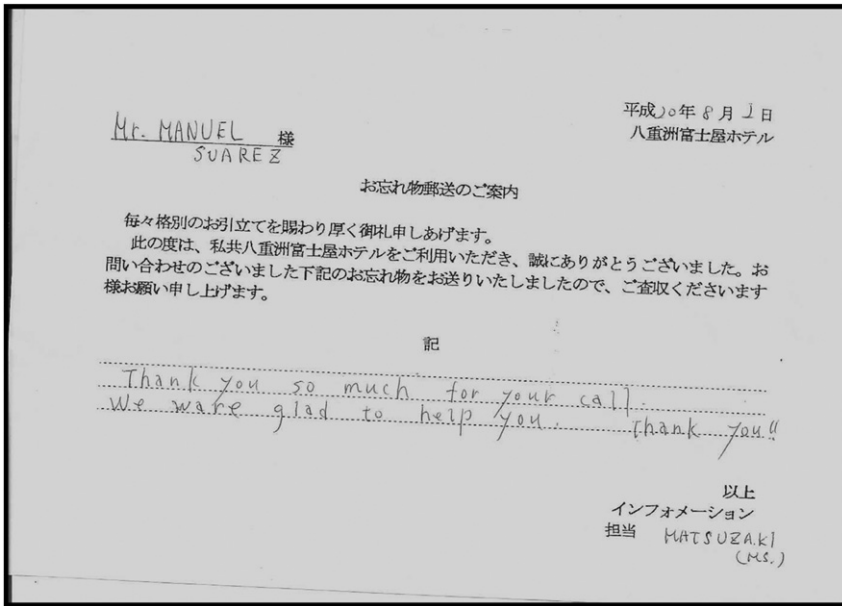 平成20年8月2日
八重洲富士屋ホテル
Mr. MANUEL 様
SUAREZ
お忘れ物郵送のご案内
毎々格別のお引立てを賜わり厚く御礼申しあげます。
此の度は、私共八重洲富士屋ホテルをご利用いただき、誠にありがとうございました。お
問い合わせのございました下記のお忘れ物をお送りいたしましたので、ご査収くださいます
様お願い申し上げます。
記
Thank you so much for your call.
We ware glad to help you. Thank you!!
以上
インフォメーション
担当 MATSUZAKI
(MS.)